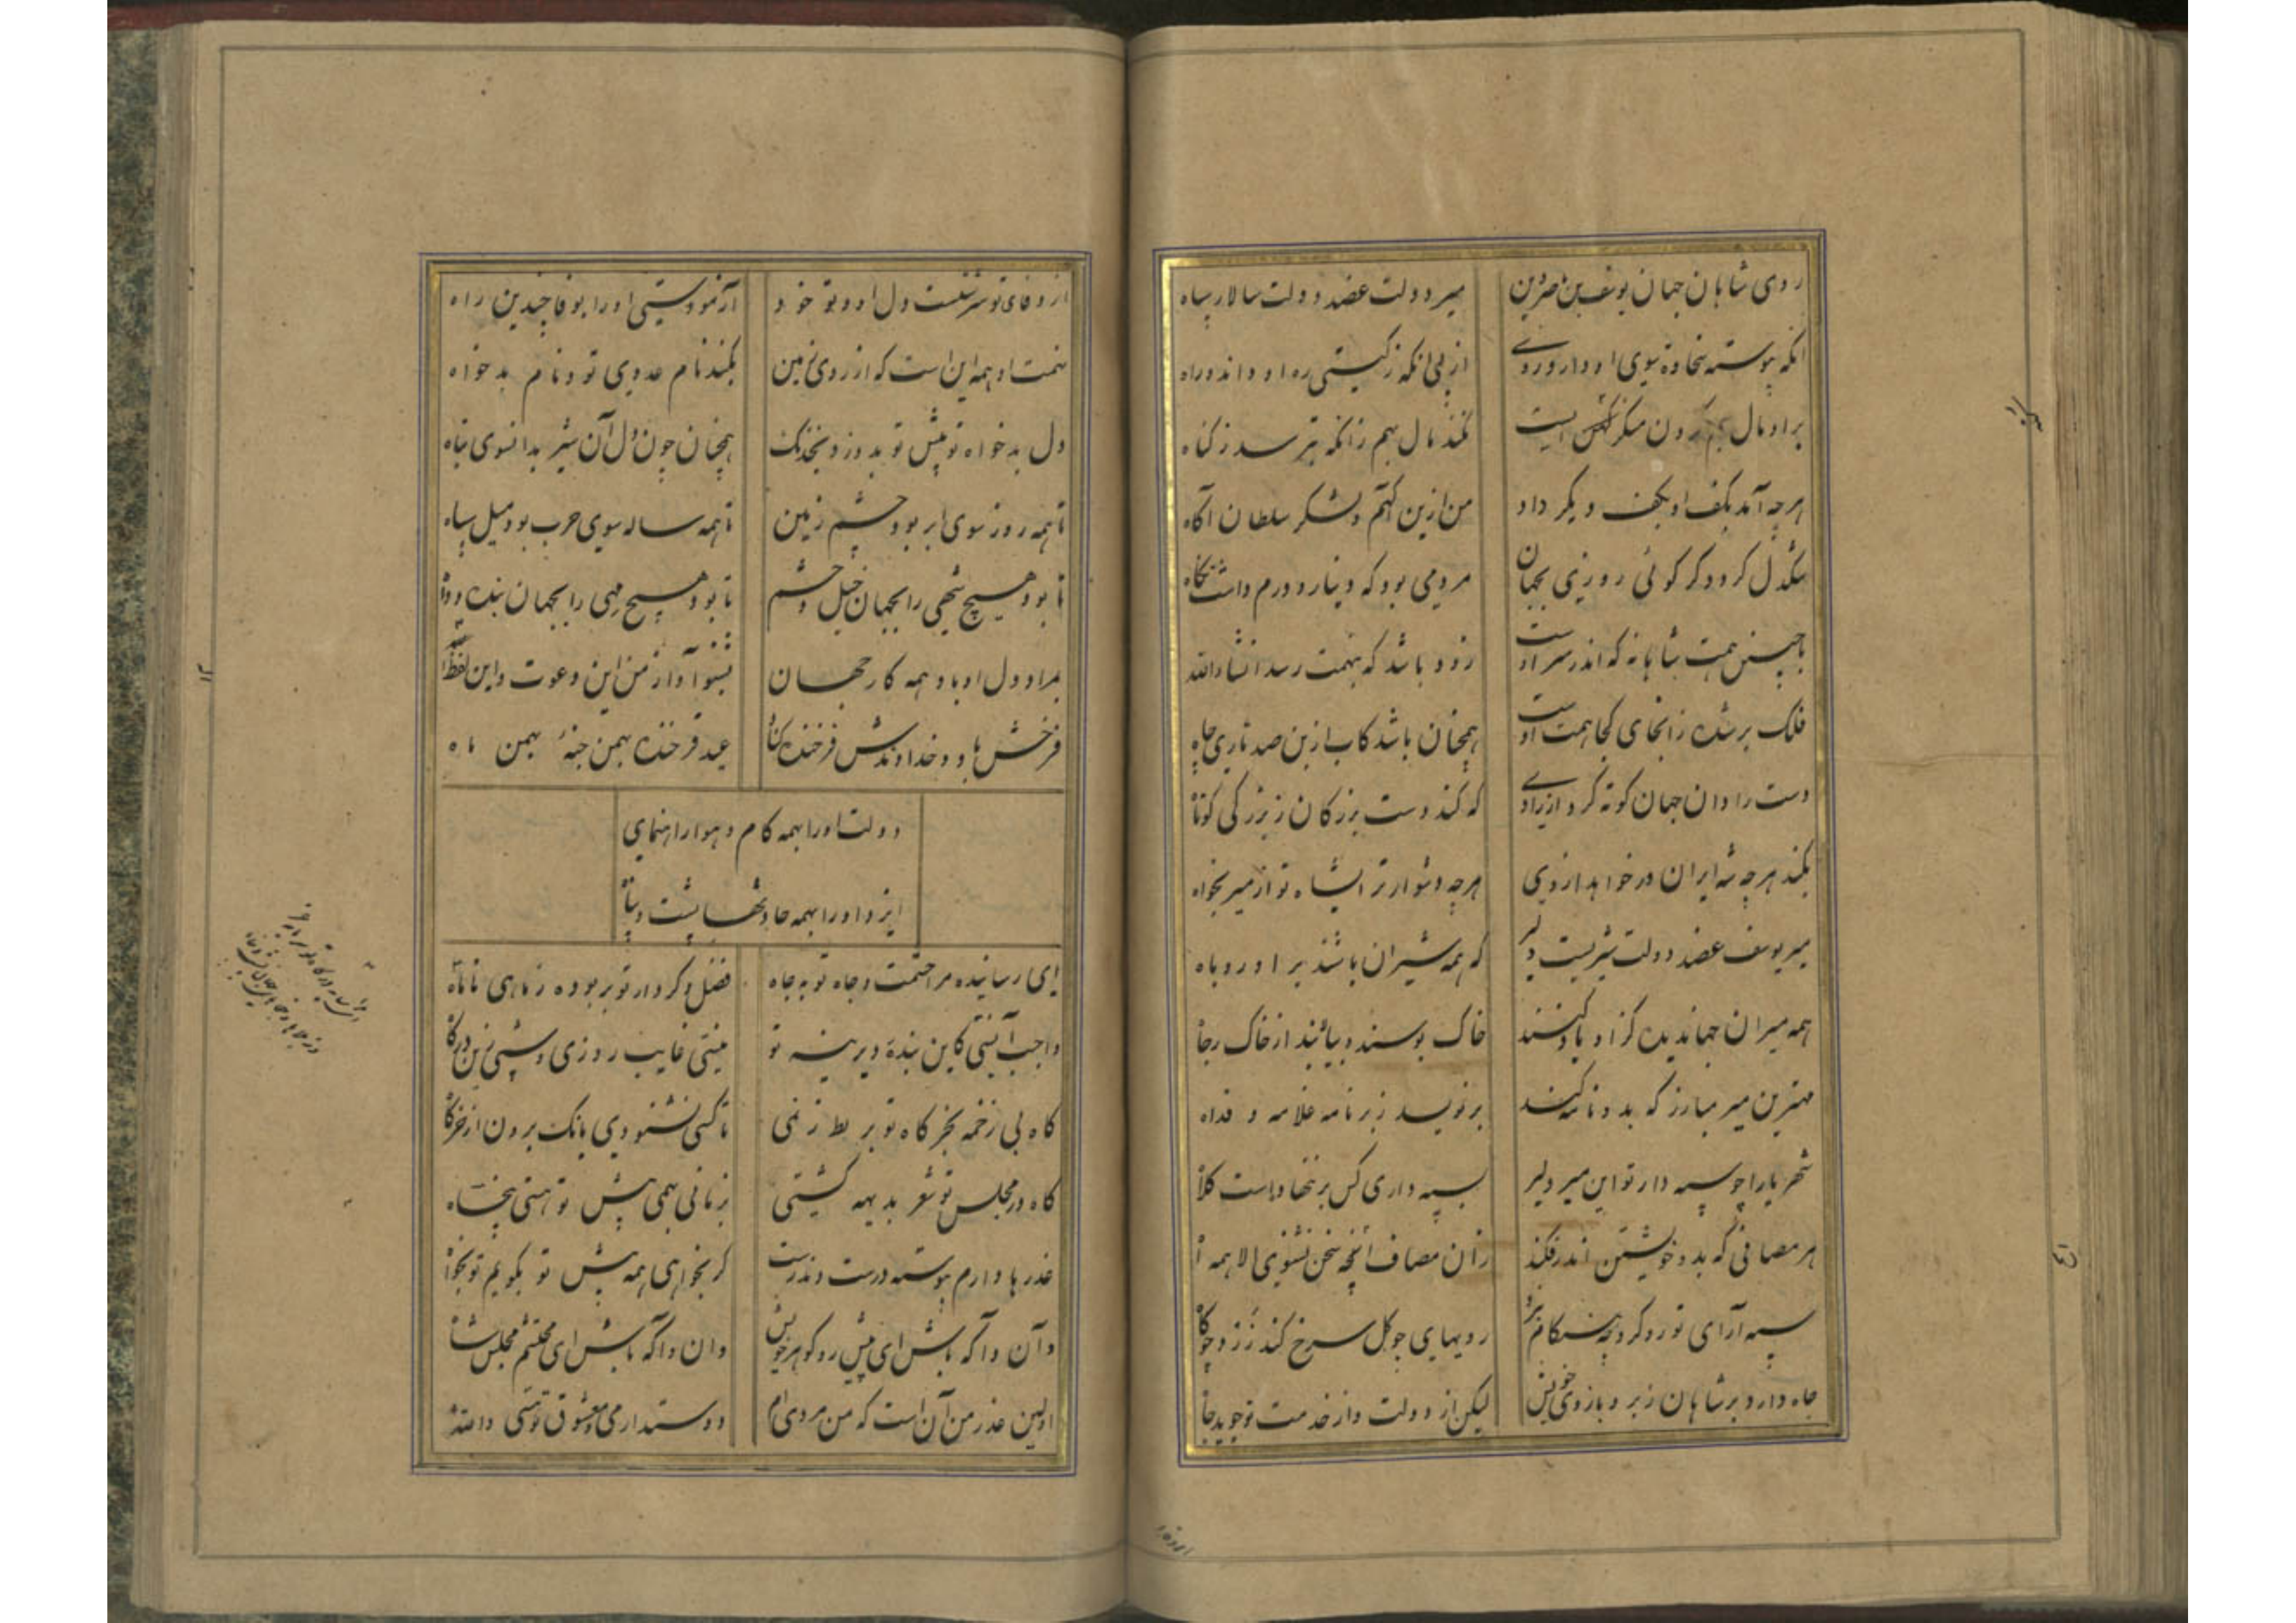 روی شاهان جهان یوسف بن ناصر دین
میر دولت عضد دولت سالار سپاه
انکه پیوسته سخاوت بسوی او دارد روی
از پی انکه ز کیتی ره او داند و راه
بر او مال بهم کردن منکر کنهیست
نکند مال بهم زانکه بترسد ز کناه
هر چه آمد بکف او بکف دیکر داد
من ازین آکهم و لشکر سلطان آکاه
تنکدل کردد کر کوئی روزی بجهان
مردمی بود که دینار و درم داشت نکاه
با چنین همت شاهانه که اندر سر اوست
زود باشد که بنهمت رسد انشاءالله
فلک برشده زانجای کجا همت اوست
همچنان باشد کاب از بن صد تاری چاه
دست رادان جهان کوته کرد از رادی
که کند دست بزرکان ز بزرکی کوتاه
بکند هر چه شه ایران درخواهد ازوی
هر چه دشوارتر ایشاه تو از میر بخواه
میر یوسف عضد دولت شیریست دلیر
که همه شیران باشند بر او روباه
همه میران جهاندیده کز او یاد کنند
خاک بوسند و بیالند از خاک رجاه
مهترین میر مبارز که بدو نامه کند
برنویسد زبر نامه غلامه و فداه
شهریارا چو سپه دار تو این میر دلیر
سپه داری کس برننهاداست کلاه
هر مصافی که بدو خویشتن اندر فکند
زان مصاف آنچه سخن شنوی الا همه آه
سپه آرای تو رو کرد بهنکام نبرد
رویهای چو کل سرخ کند زرد چو کاه
جاه دارد بر شاهان زبر و بازوی خویش
لیکن از دولت و از خدمت تو جوید جاه
از وفای تو سرشتست دل او و تو خود
آزمودستی او را بوفا چندین راه
نهمت او همه این است که از روی زمین
بکند نام عدوی تو و نام بدخواه
دل بدخواه تو پیش تو بدوزد بخدنک
همچنان چون دل آن شیر بدانسوی تباه
تا همه روز سوی ابر بود چشم زمین
تا همه ساله سوی حرب بود میل سپاه
تا بود هیچ شهی را بجهان خیل و حشم
تا بود هیچ مهی را بجهان بنده و داه
بمراد دل او باد همه کار جهان
بشنوا دار ز من این دعوت و این لفظ اله
فرخش باد و خداوندش فرخنده کناد
عید فرخنده بهمن جنه بهمن ماه
دولت اورا بهمه کام و هوا راهنمای
ایزد اورا بهمه حادثها پشت و پناه
ای رسانیده مرا حشمت و جاه تو بجاه
فضل و کردار تو بربوده ز ماهی تا ماه
واجب آنستی کاین بندهٔ دیرینه تو
نیستی غایب روزی و شبی زین درکاه
کاه بی زخمه بخرکاه تو بربط زنمی
تا کسی نشنودی بانک برون از خرکاه
کاه در مجلس تو شعر بدیهه کنمی
زمانی بهمی پیش تو هستی پنجاه
عذرها دارم پیوسته درست و ندرست
کر بخواهی همه پیش تو بکویم تو بخواه
وآن واکه باش ای پیش رو کوهر خویش
وان واکه باش ای محتشم مجلس شاه
اولین عذر من آن است که من مردی ام
دوستدار می و معشوق توئی واله